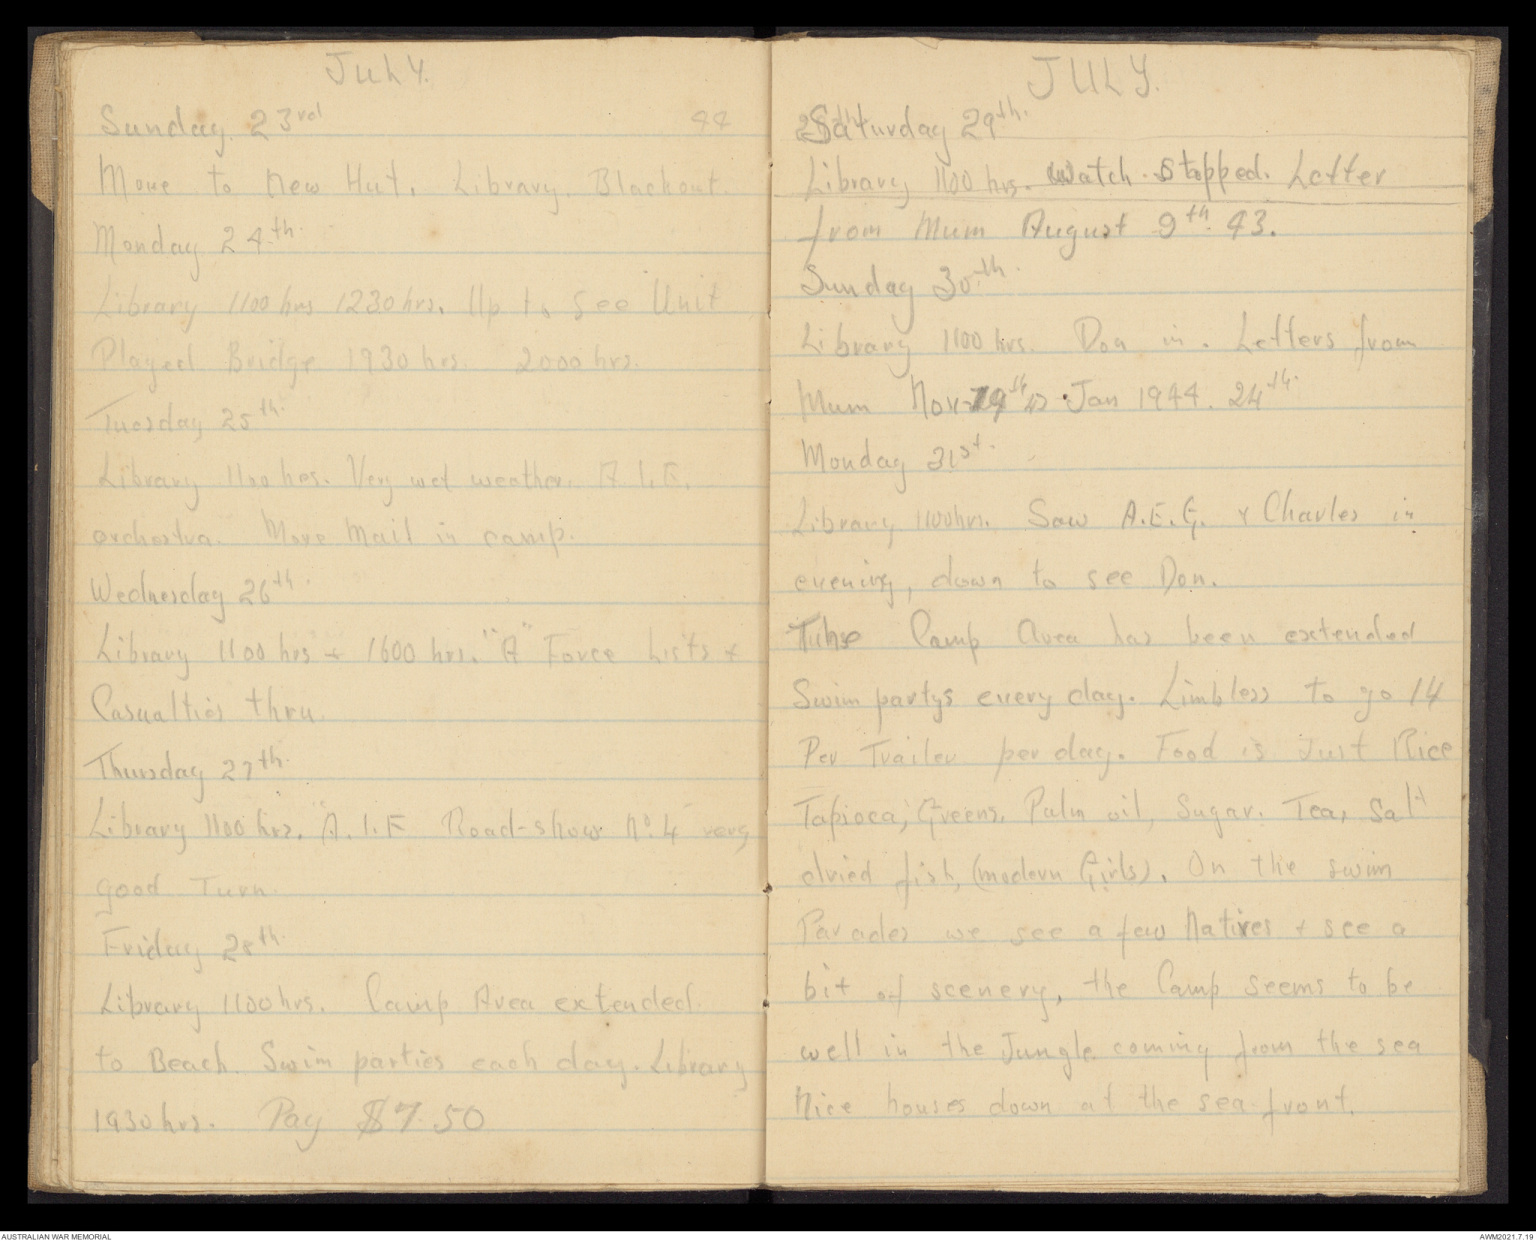 July.
Sunday 23rd 44
Move to New Hut. Library. Blackout.
Monday 24th.
Library 1100 hrs 1230 hrs. Up to see Unit
Played Bridge 1930 hrs. 2000 hrs.
Tuesday 25th.
Library 1100 hrs. Very wet weather. A.I.F.
orchestra. More Mail in camp.
Wednesday 26th.
Library 1100 hrs + 1600 hrs. "A" Force Lists +
Casualties thru.
Thursday 27th.
Library 1100 hrs. A.I.F Road-show No. 4 very
good Turn.
Friday 28th
Library 1100 hrs. Camp Area extended
to Beach. Swim parties each day. Library
1930 hrs. Pay $7.50
JULY.
Saturday 29th.
Library 1100 hrs. Watch stopped. Letter
from Mum August 9th 43.
Sunday 30th.
Library 1100 hrs. Don in. Letters from
Mum Nov 19th Jan 1944. 24th.
Monday 31st.
Library 1100hrs. Saw A.E.G. & Charles in
evening, down to see Don.
Camp Area has been extended
Swim partys every day. Limbless to go 14
Per Trailer per day. Food is Just Rice
Tapioca, Greens, Palm oil, Sugar, Tea, Salt
dried fish, (modern Girls). On the swim
Parades we see a few Natives + see a
bit of scenery, the Camp seems to be
well in the Jungle coming from the sea
Nice houses down at the sea front.
AUSTRALIAN WAR MEMORIAL
AWM2021.7.19